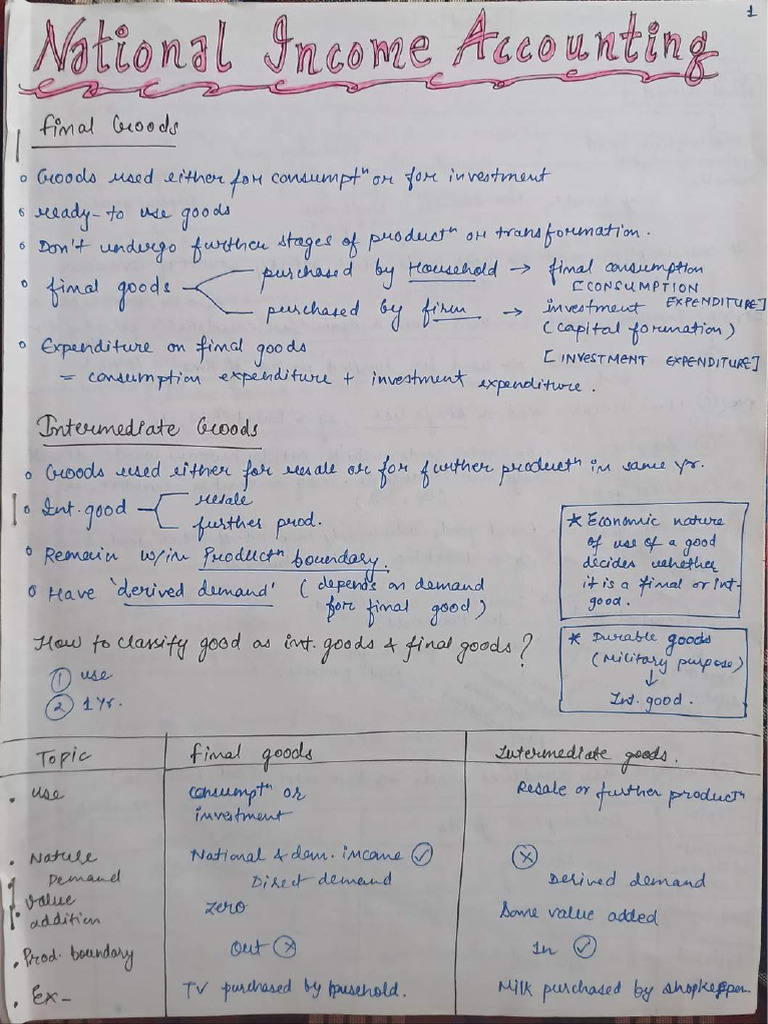 1
National Income Accounting
Final Goods
Goods used either for consumptⁿ or for investment
ready-to use goods
Don't undergo further stages of productⁿ or transformation.
final goods
purchased by Household → final consumption
[CONSUMPTION EXPENDITURE]
purchased by firm → investment
(capital formation)
[INVESTMENT EXPENDITURE]
Expenditure on final goods
= consumption expenditure + investment expenditure.
Intermediate Goods
Goods used either for resale or for further productⁿ in same yr.
Int. good
resale
further prod.
Remain w/in Productⁿ boundary.
Have 'derived demand' (depends on demand
for final good)
* Economic nature
of use of a good
decides whether
it is a final or int-
good.
How to classify good as int. goods & final goods?
① use
② 1 Yr.
* Durable goods
(Military purpose)
↓
Int. good.
Topic | final goods | Intermediate goods.
Use | consumptⁿ or investment | Resale or further productⁿ
Nature | National & dom. income ✓ | ✗
Demand | Direct demand | Derived demand
Value addition | Zero | Some value added
Prod. boundary | Out ✗ | In ✓
Ex- | TV purchased by household. | Milk purchased by shopkepper.